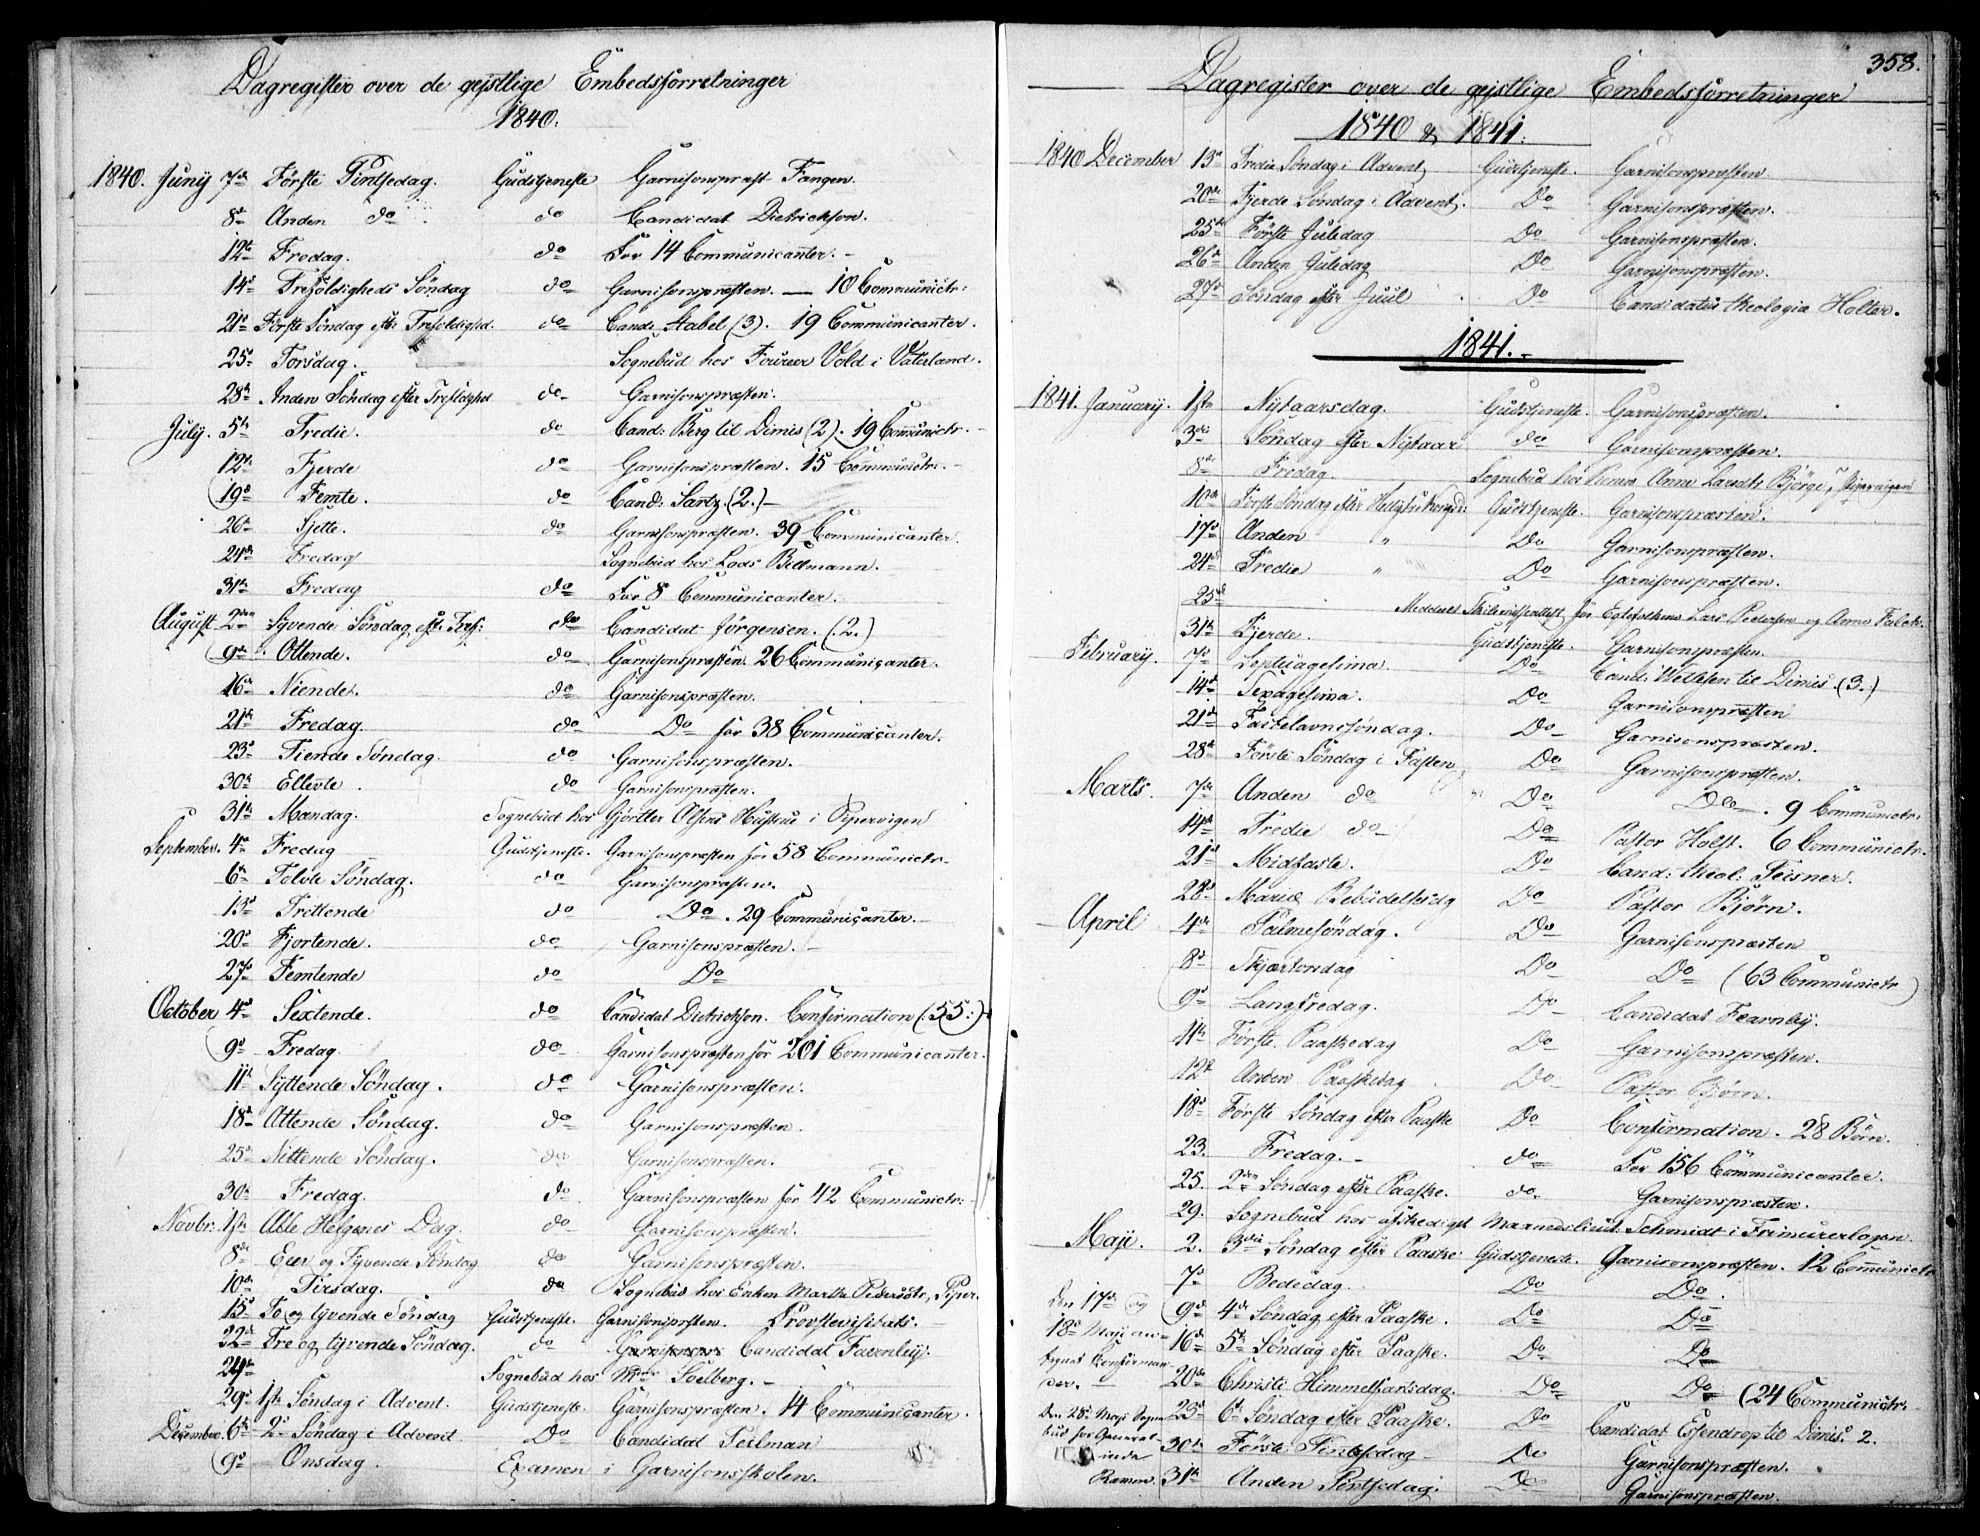 Dagregister over de geistlige Embedsforretninger
1840.
1840. Juny 7de Förste Pintsedag. Gudstjeneste Garnisonsprest Fangen.
8de Anden do do Candidat Dietrichson.
12te Fredag. do For 14 Communicanter.
14de Trefoldigheds Söndag do Garnisonspræsten. — 10 Communictr:
21de Förste Söndag efter Trefoldighd. do Cand: Stabel (3). 19 Communicanter.
25de Torsdag. Sognebud hos Foureer Vold i Vaterland.
28de Anden Söndag efter Trefoldighd do Garnisonspræsten.
July. 5te Tredie. do Cand: Berg til Dimis (2). 19 Communictr.
12te Fjerde do Garnisonspræsten. 15 Communictr.
19de Femte. do Cand: Sartz. (2.)
26de Sjette. do Garnisonspræsten. 39 Communicanter.
24de Fredag Sognebud hos Lods Billmann.
31te Fredag do For 8 Communicanter.
August 2den Syvende Söndag eft. Tref: do Candidat Jörgensen. (2.)
9de Ottende. do Garnisonspræsten. 26 Communicanter.
16de Niende. do Garnisonspræsten.
21de Fredag. do Do for 38 Communicanter.
23de Tiende Söndag. do Garnisonspræsten.
30te Ellevte. do Garnisonspræsten.
31te Mandag. Sognebud hos Gjörtler Olsens Hustrue i Pipervigen
September. 4de Fredag Gudstjeneste. Garnisonspræsten for 58 Communictr.
6te Tolvte Söndag. do Garnisonspræsten.
13de Trettende do Do. 29 Communicanter.
20de Fjortende. do Garnisonspræsten.
27de Femtende do Do
October 4de Sextende. do Candidat Dietrichson. Confirmation (55.)
9de Fredag. do Garnisonspræsten for 201 Communicanter.
11te Syttende Söndag. do Garnisonspræsten.
18de Attende Söndag. do Garnisonspræsten.
25de Nittende Söndag. do Garnisonspræsten.
30te Fredag. do Garnisonspræsten for 42 Communictr:
Novbr. 1ste Alle Helgenes Dag. do Garnisonspræsten.
8de Een og Tyvende Söndag do Garnisonspræsten.
10de Tirsdag. do Sognebud hos Enken Marthe Pedersdtr, Piper.
15de To og tyvende Söndag Gudstjeneste. Garnisonspræsten. Provstevisitats.
22de Tre og tyvende Söndag. do Candidat Fearnley.
24de Sognebud hos Solberg.
29de 1ste Söndag i Advent. Gudstjeneste. Garnisonspræsten. 14 Communicanter.
December. 6te 2de Söndag i Advent. Do Candidat Teilman
9de Onsdag. Examen i Garnisonsskolen.
358.
Dagregister over de geistlige Embedsforretninger
1840 & 1841.
1840 December 13de Tredie Söndag i Advent Gudstjeneste. Garnisonspræsten
20de Fjerde Söndag i Advent. Do Garnisonspræsten.
25de Förste Juledag Do Garnisonspræsten.
26de Anden Juledag Do Garnisonspræsten.
27de Söndag efter Juul Do Candidatus theologia Holter.
1841.
1841. January. 1ste Nytaarsdag. Gudstjeneste. Garnisonspræsten.
3die Söndag efter Nytaar do Garnisonspræsten.
8de Fredag. Sognebud hos Anne Björge, Pipervigen
10de Förste Söndag efter Helligtrekongsd: Gudstjeneste. Garnisonspræsten.
17de Anden " Do Garnisonspræsten.
24de Tredie " Do Garnisonspræsten.
25de Meddeelt Skilsmisseattest for Egtefolkene Lars Pedersen og Anne Falck.
31te Fjerde. Gudstjeneste. Garnisonspræsten.
February. 7de Septuagesima. Do Cand: Wettesen til Dimis. (3.)
14de Sexagesima. Do Garnisonspræsten
21de Fastelavnssöndag. Do Garnisonspræsten.
28de Förste Söndag i Fasten Do Garnisonspræsten.
Marts. 7de Anden do Do Do. 9 Communictr.
14de Tredie do Do Pastor Holst. 6 Communictr.
21de Midfaste. Do Cand: theol: Teisner.
28de Mariæ Bebudelsesdg Do Pastor Björn.
April 4de Palmesöndag. Do Garnisonspræsten
8de Skjærtorsdag Do Do (63 Communictr)
9de Langfredag. Do Candidat Fearnley.
11te Förste Paaskedag Do Garnisonspræsten.
12te Anden Paaskedag Do Pastor Björn.
18de Förste Söndag efter Paaske Do Confirmation. 28 Börn.
23. Fredag. do For 156 Communicanter.
25. 2den Söndag efter Paaske. do. Garnisonspræsten.
29. Sognebud hos afskediget Maanedslieut: Schmidt i Frimurerlogen.
Maji. 2. 3die Söndag efter Paaske Gudstjeneste. Garnisonspræsten. 12 Communictr
7de Bededag. Do Do.
Den 17de og 9de 4de Söndag efter Paaske. Do Do
18de Maji an- 16de 5te Söndag efter Paaske. Do Do
tegnet Confirman-
der. 20de Christi Himmelfartsdag. Do Do (24 Communictr.
Den 28de Maji Sogne- 23de 6te Söndag efter Paaske. Do Candidat Essendrop til Dimis. 2.
bud hos General-
inde 30te Förste Pintsedag Do Garnisonspræsten.
Ramm. 31te Anden Pintsedag. Do Garnisonspræsten.